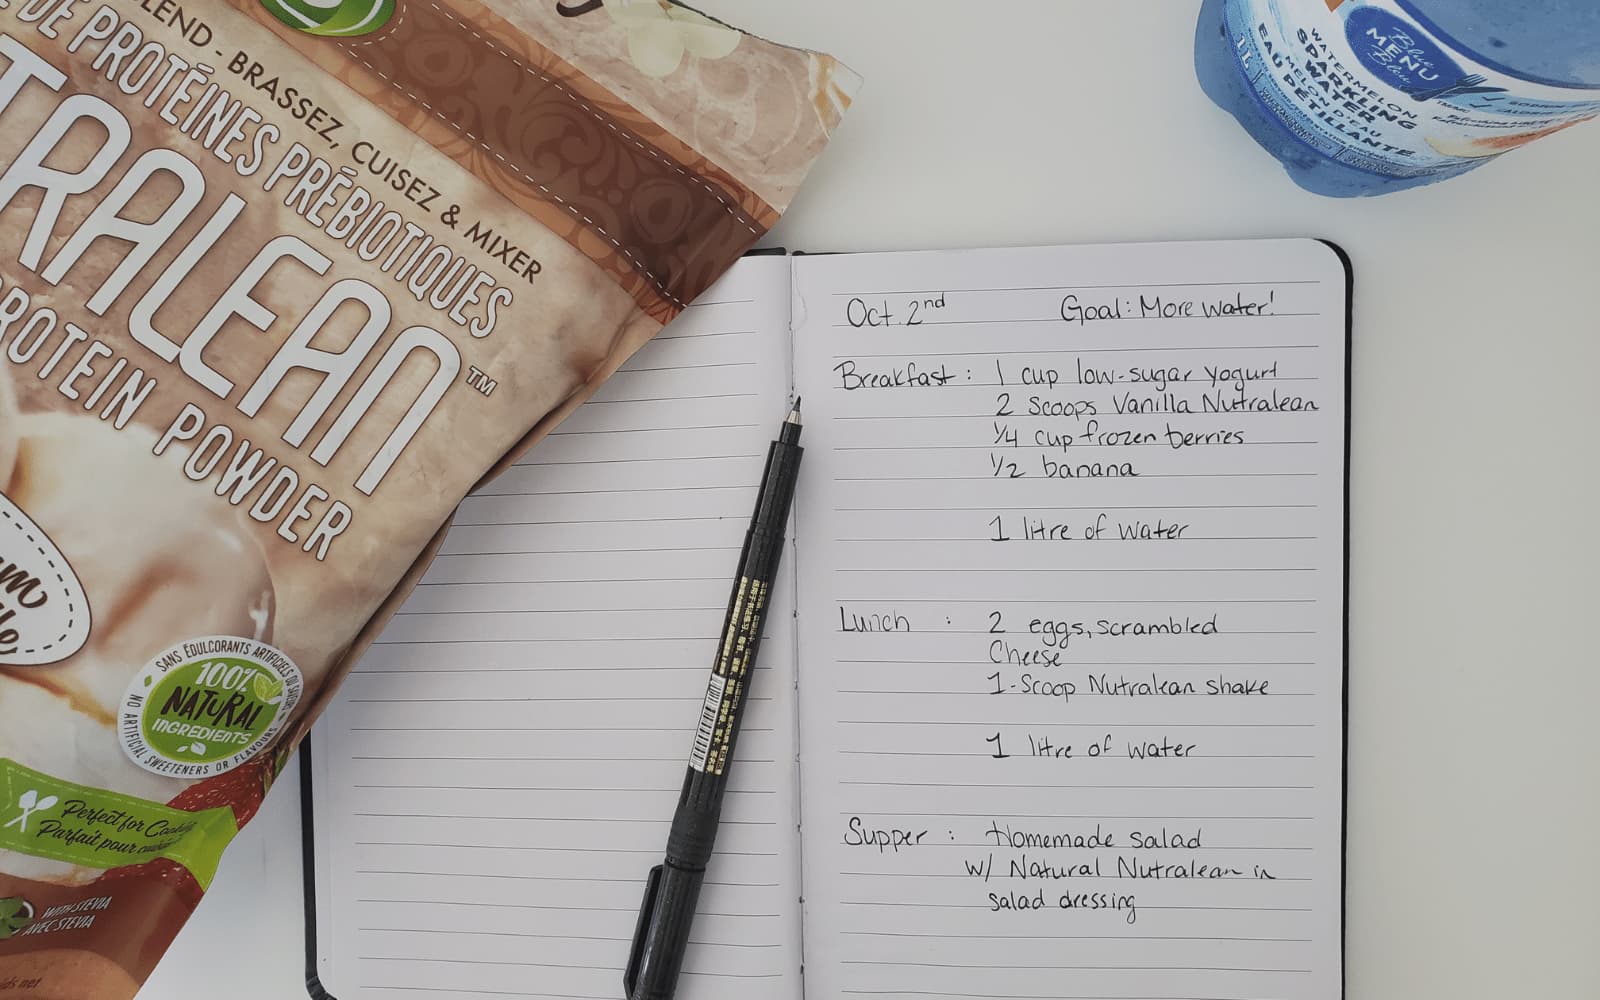 BRASSEZ, CUISEZ & MIXER
DE PROTÉINES PRÉBIOTIQUES
TRALEAN™
PROTEIN POWDER
SANS ÉDULCORANTS ARTIFICIELS
100%
NATURAL
INGREDIENTS
NO ARTIFICIAL SWEETENERS OR FLAVOURS
Perfect for
Parfait pour
WITH STEVIA
AVEC STEVIA
Blue
MENU
Bleu
WATERMELON
SPARKLING
WATER
MELON D'EAU
EAU PÉTILLANTE
1 L
Oct. 2nd Goal: More water!
Breakfast: 1 cup low-sugar yogurt
2 scoops Vanilla Nutralean
1/4 cup frozen berries
1/2 banana
1 litre of water
Lunch : 2 eggs, scrambled
Cheese
1-Scoop Nutralean shake
1 litre of water
Supper : Homemade salad
w/ Natural Nutralean in
salad dressing